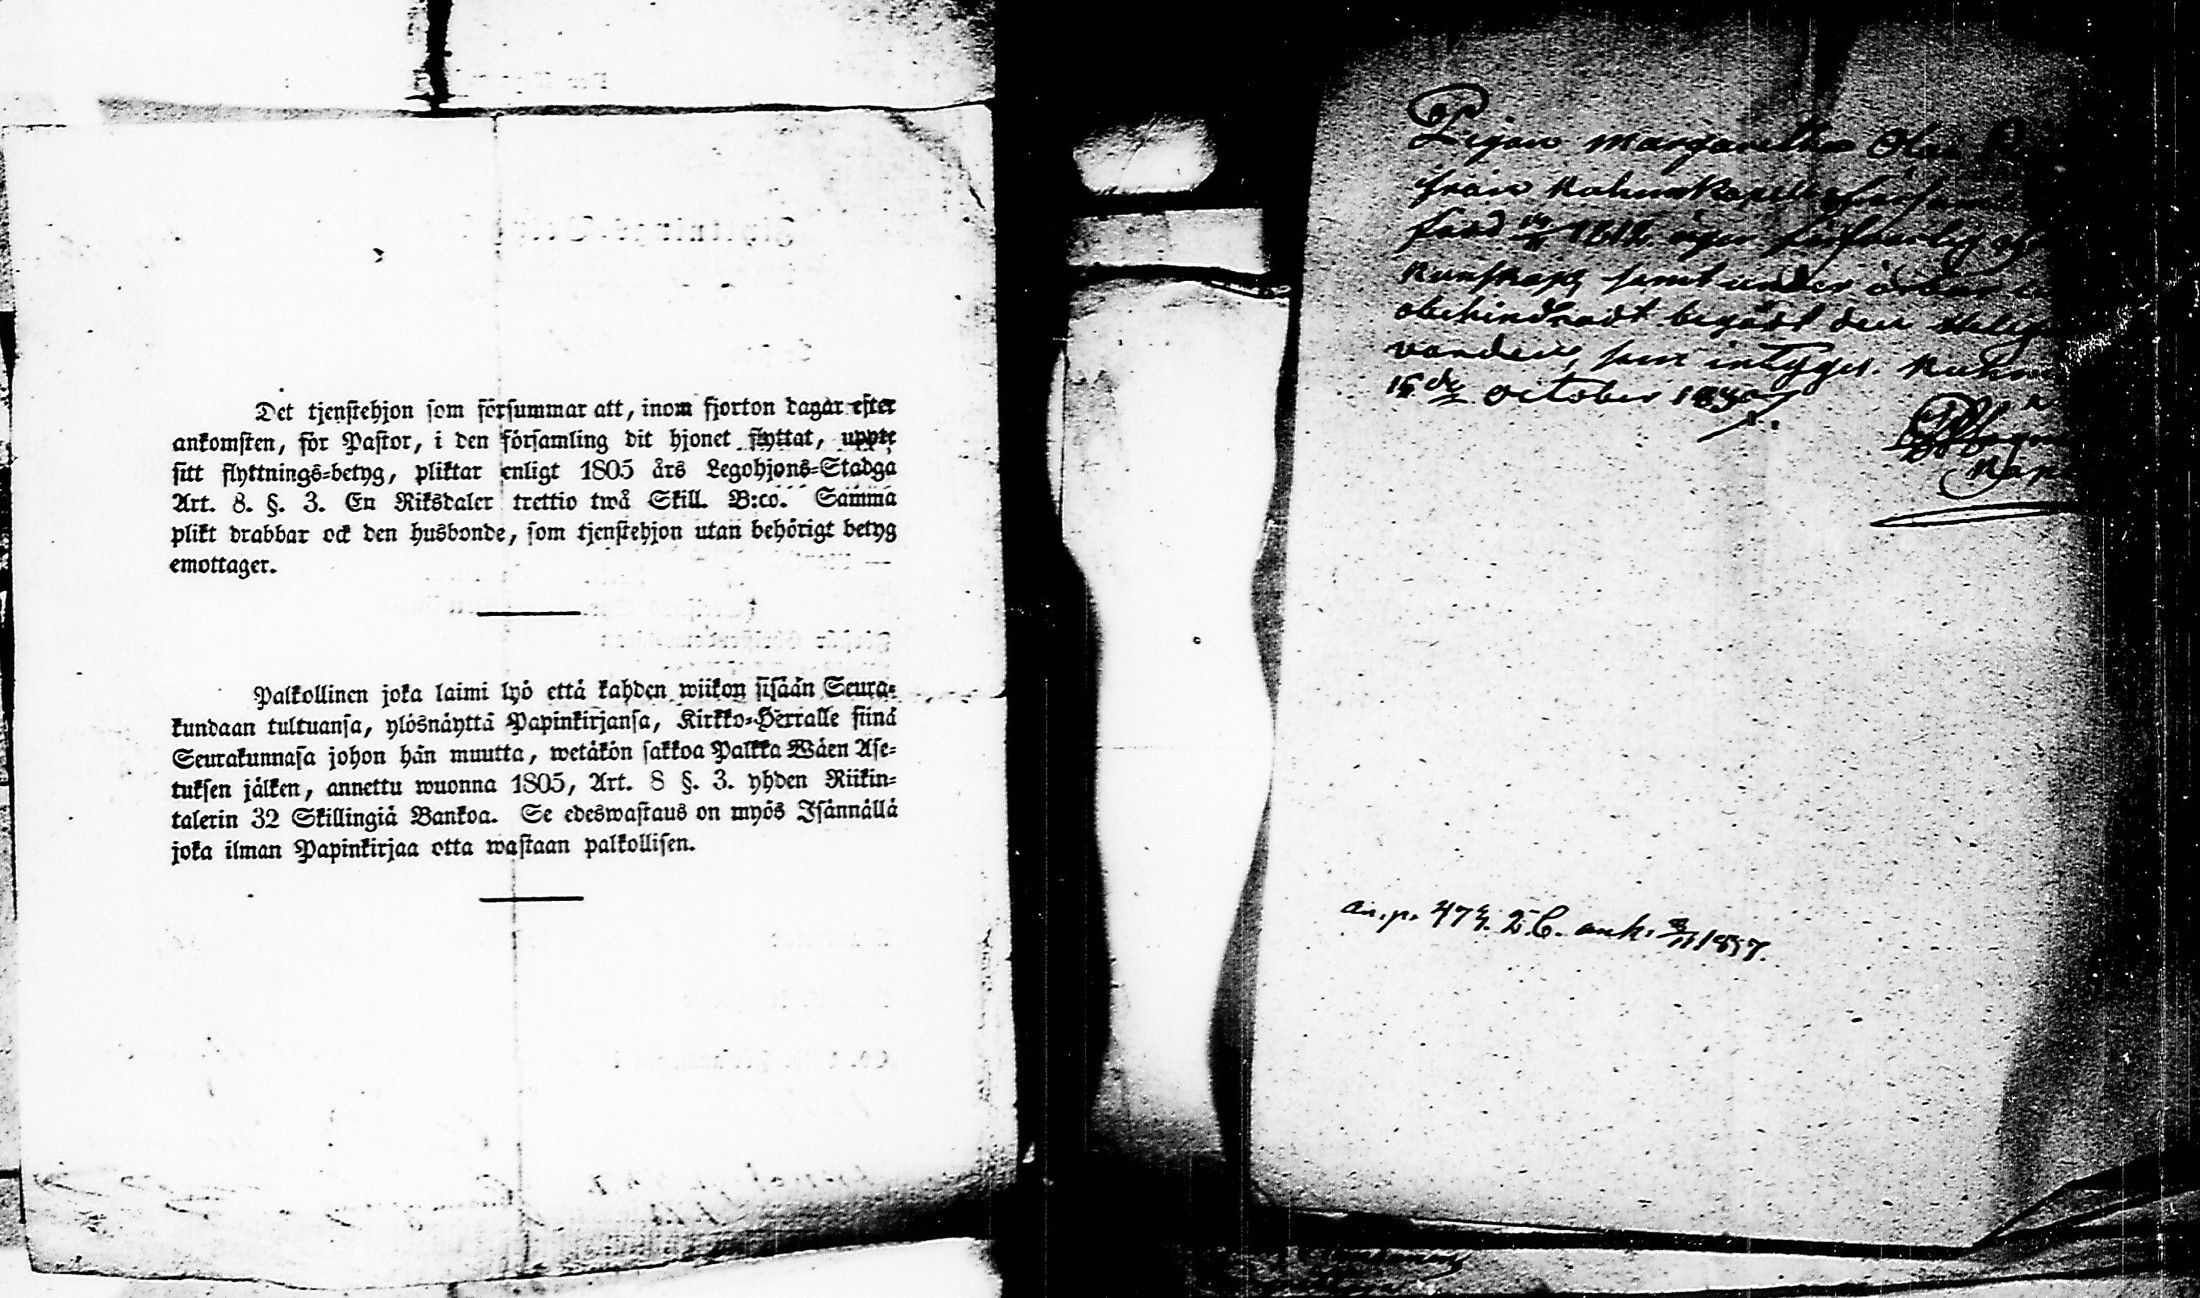 Det tjenstehjon som försummar att, inom fjorton dagar efter
ankomsten, för Pastor, i den församling dit hjonet flyttat, uppte
sitt flyttnings-betyg, pliktar enligt 1805 års Legohjons-Stadga
Art. 8. §. 3. En Riksdaler trettio twå Skill. B:co. Samma
plikt drabbar ock den husbonde, som tjenstehjon utan behörigt betyg
emottager.
Palkollinen joka laimi lyö että kahden wiikon sisään Seura-
kundaan tultuansa, ylösnäyttä Papinkirjansa, Kirkko-Herralle siinä
Seurakunnasa johon hän muutta, wetäkön sakkoa Palkka Wäen Ase-
tuksen jälken, annettu wuonna 1805, Art. 8 §. 3. yhden Riikin-
talerin 32 Skillingiä Bankoa. Se edeswastaus on myös Isännällä
joka ilman Papinkirjaa otta wastaan palkollisen.
Pigan Margaretha Olai
från
född 1812 äger
kunskap, samt under
obehindradt begådt den Helige
vanden, som intygas.
15de October 1830
an. p. 474. 2 C. ank. 1837.